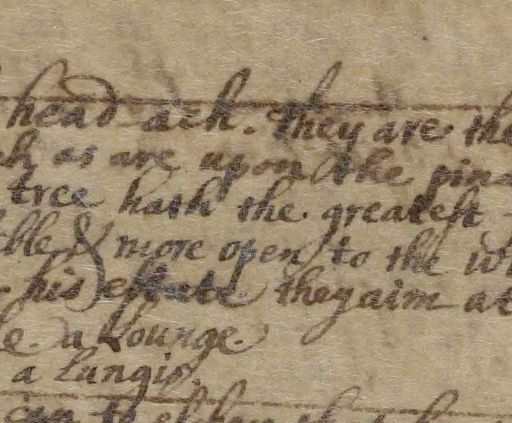 head ach. They are the
as are upon the pina
tree hath the greatest
ble & more open to the wi
his estate they aim at
a Lounge.
a Lungis.